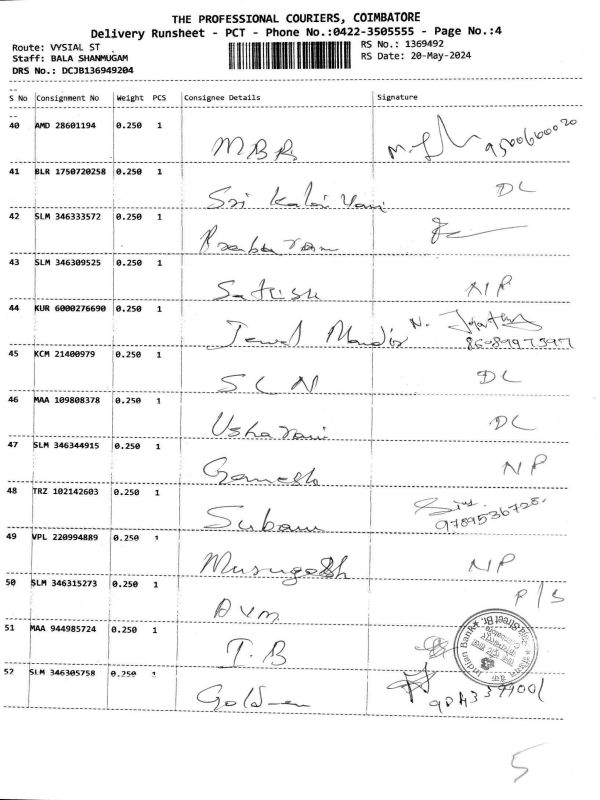 THE PROFESSIONAL COURIERS, COIMBATORE
Delivery Runsheet - PCT - Phone No.:0422-3505555 - Page No.:4
Route: VYSIAL ST
RS No.: 1369492
Staff: BALA SHANMUGAM
RS Date: 20-May-2024
DRS No.: DCJB136949204
S No Consignment No Weight PCS Consignee Details Signature
40 AMD 28601194 0.250 1 MBR
41 BLR 1750720258 0.250 1 Sri Kalai Vani DL
42 SLM 346333572 0.250 1
43 SLM 346309525 0.250 1 Satish NP
44 KUR 6000276690 0.250 1 Jewel Mandir N.
45 KCM 21400979 0.250 1 SCN DL
46 MAA 109808378 0.250 1 Usha rani DL
47 SLM 346344915 0.250 1 Ganesh NP
48 TRZ 102142603 0.250 1 9789536728
49 VPL 220994889 0.250 1 NP
50 SLM 346315273 0.250 1 AVM R/S
51 MAA 944985724 0.250 1 I.B Indian Bank
52 SLM 346305758 0.250 1 Golden
5